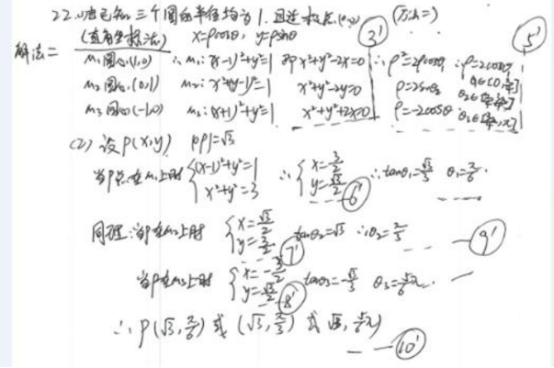 22.(1)已知三个圆的半径均为1,且过极点(0,0) (方法二)
解法二 (直角坐标法) x=ρcosθ, y=ρsinθ 3' 5'
M₁圆心(1,0) ∴M₁:(x-1)²+y²=1 即x²+y²-2x=0 ∴ρ²=2ρcosθ, ∴ρ=2cosθ, θ∈[0,π/4]
M₂圆心(0,1) M₂: x²+(y-1)²=1 x²+y²-2y=0 ρ=2sinθ θ₂∈[π/4,3π/4]
M₃圆心(-1,0) M₃:(x+1)²+y²=1 x²+y²+2x=0 ρ=-2cosθ θ₃∈[3π/4,π]
(2) 设P(x,y) |OP|=√3
当P点在M₁上时 {(x-1)²+y²=1 x²+y²=3 ∴{x=3/2 y=√3/2 6' ∴tanθ₁=√3/3 θ₁=π/6
同理:当P在M₂上时 {x=√3/2 y=3/2 7' tanθ₂=√3 ∴θ₂=π/3 9'
当P在M₃上时 {x=-3/2 y=√3/2 8' tanθ₃=-√3/3 θ₃=5/6π
∴P(√3,π/6)或(√3,π/3)或(√3,5/6π)
10'